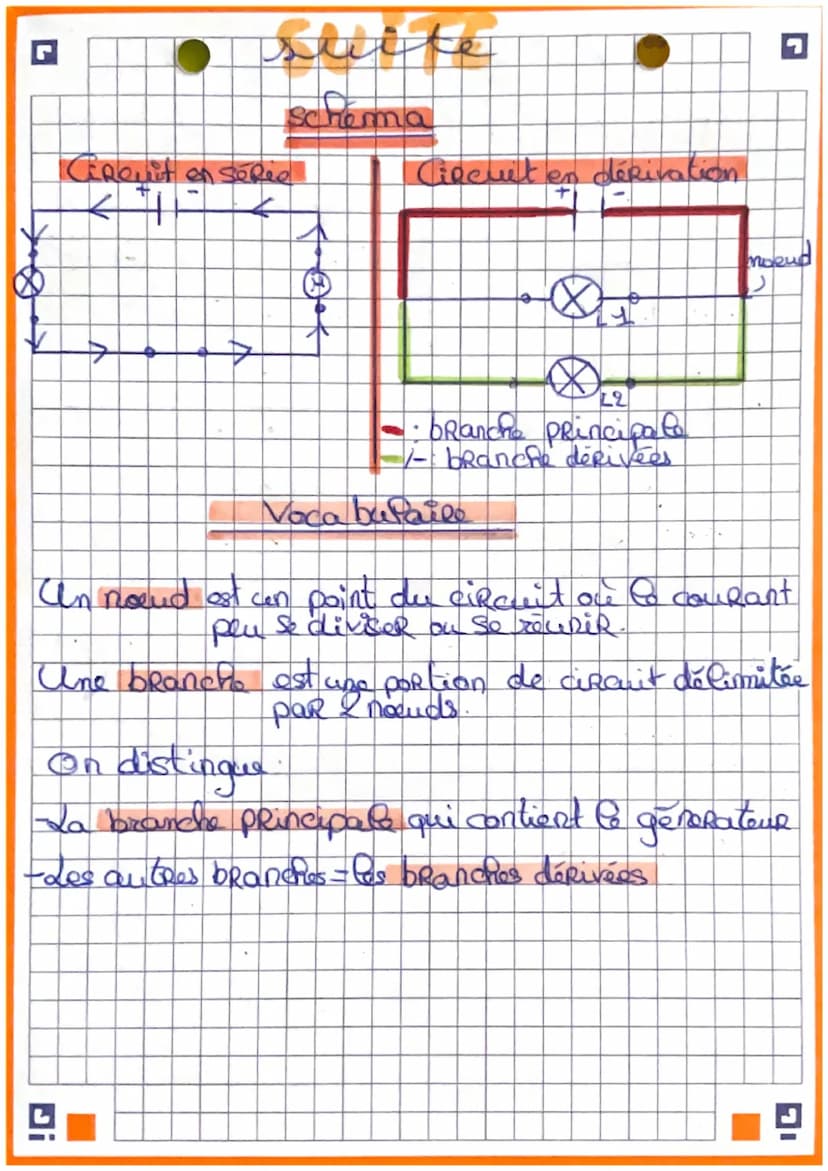 suite
schéma
Circuit en série
Circuit en dérivation
+ -
+ -
M
noeud
L1
L2
- : branche principale
-/-: branche dérivées
Vocabulaire
Un nœud est un point du circuit où le courant
peu se diviser ou se réunir.
Une branche est une portion de circuit délimitée
par 2 nœuds.
On distingue:
-La branche principale qui contient le générateur
-Les autres branches = les branches dérivées